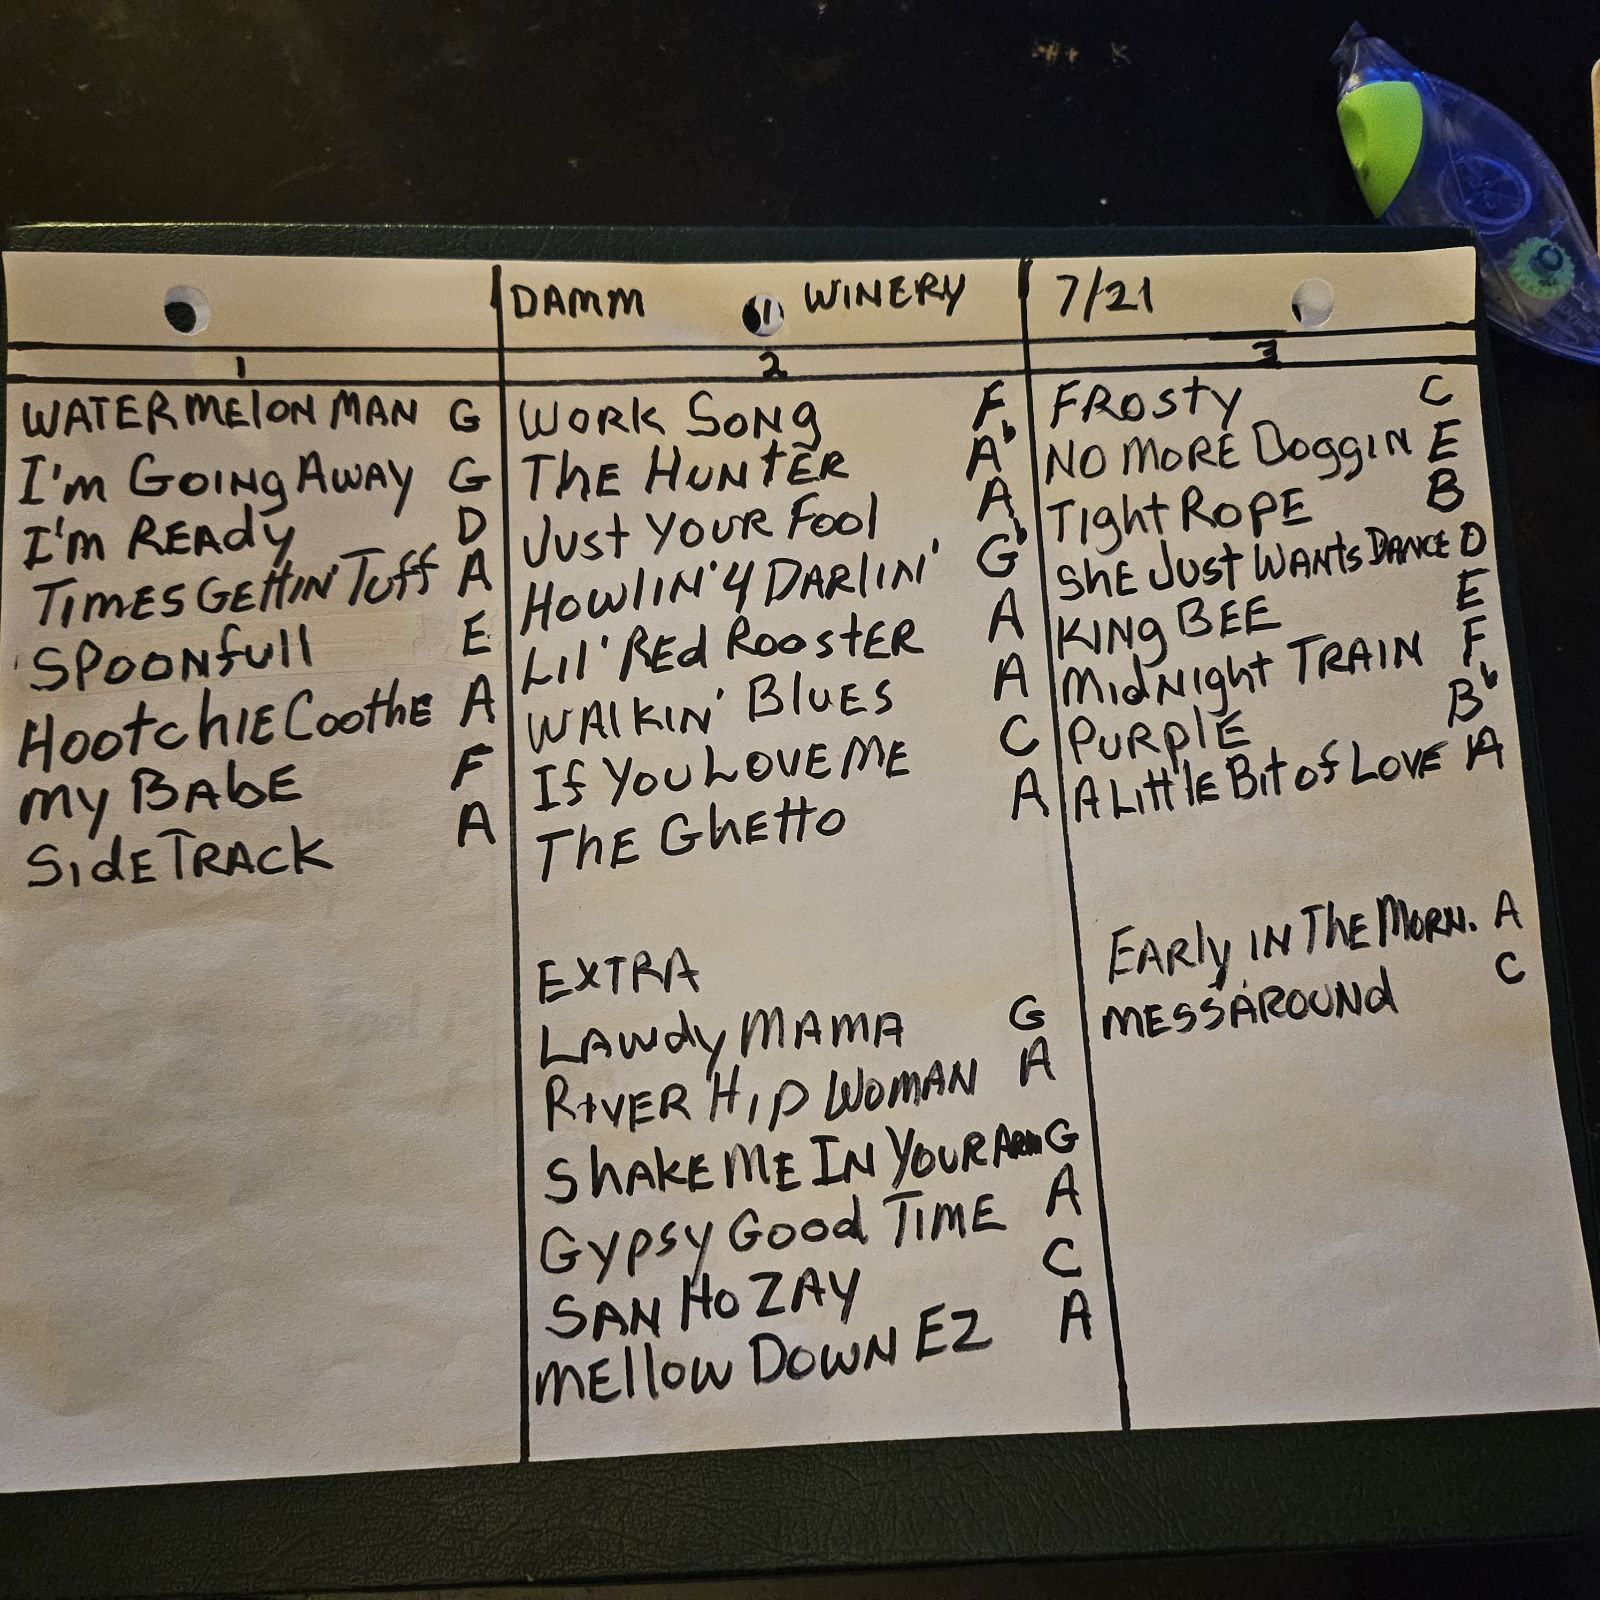 DAMM WINERY 7/21
1
WATERMELON MAN G
I'm GOING AWAY G
I'm READY D
TIMES GETTIN' TUFF A
SPOONFULL E
HOOTCHIE COOTHE A
MY BABE F
SIDE TRACK A
2
WORK SONG F
THE HUNTER Ab
JUST YOUR FOOL A
HOWLIN' 4 DARLIN' Gb
LIL' RED ROOSTER A
WALKIN' BLUES A
IF YOU LOVE ME C
THE GHETTO A
EXTRA
LAWDY MAMA G
RIVER HIP WOMAN A
SHAKE ME IN YOUR ARM G
GYPSY GOOD TIME A
SAN HO ZAY C
MELLOW DOWN EZ A
3
FROSTY C
NO MORE DOGGIN E
TIGHT ROPE B
SHE JUST WANTS DANCE D
KING BEE E
MIDNIGHT TRAIN F
PURPLE Bb
A LITTLE BIT OF LOVE A
EARLY IN THE MORN. A
MESSAROUND C